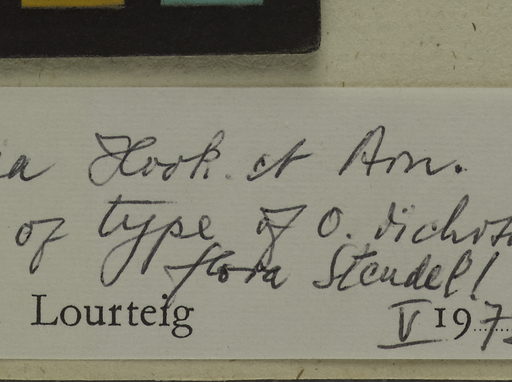 a Hook. et Arn.
of type of O. dichoto
flora Steudel!
Lourteig V 197